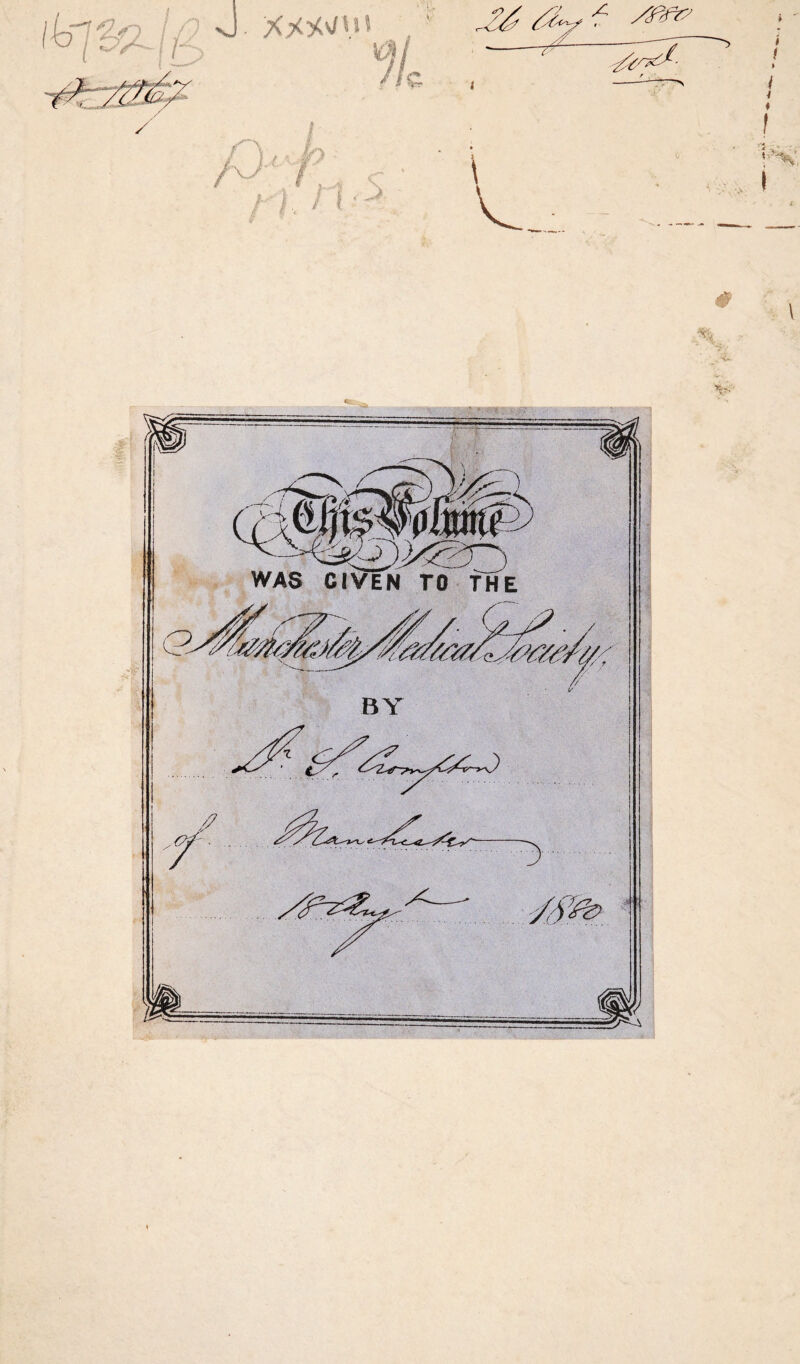 16732/B J. XXXVIII 26 Augt. 1880
9/c
O. 1067
Dup
M.M.S
This Volume
WAS GIVEN TO THE
Manchester Medical Society,
BY
Dr. S. Crompton
of Manchester
18 Augt 1880